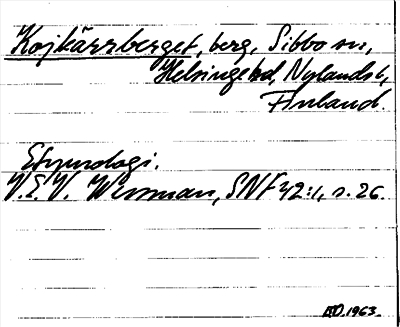 Kojkärrberget, berg, Sibbo sn,
Helsinge hd, Nylands l,
Finland.
Etymologi.
V.E.V. Wessman, SNF 42:1, s. 26.
1963.